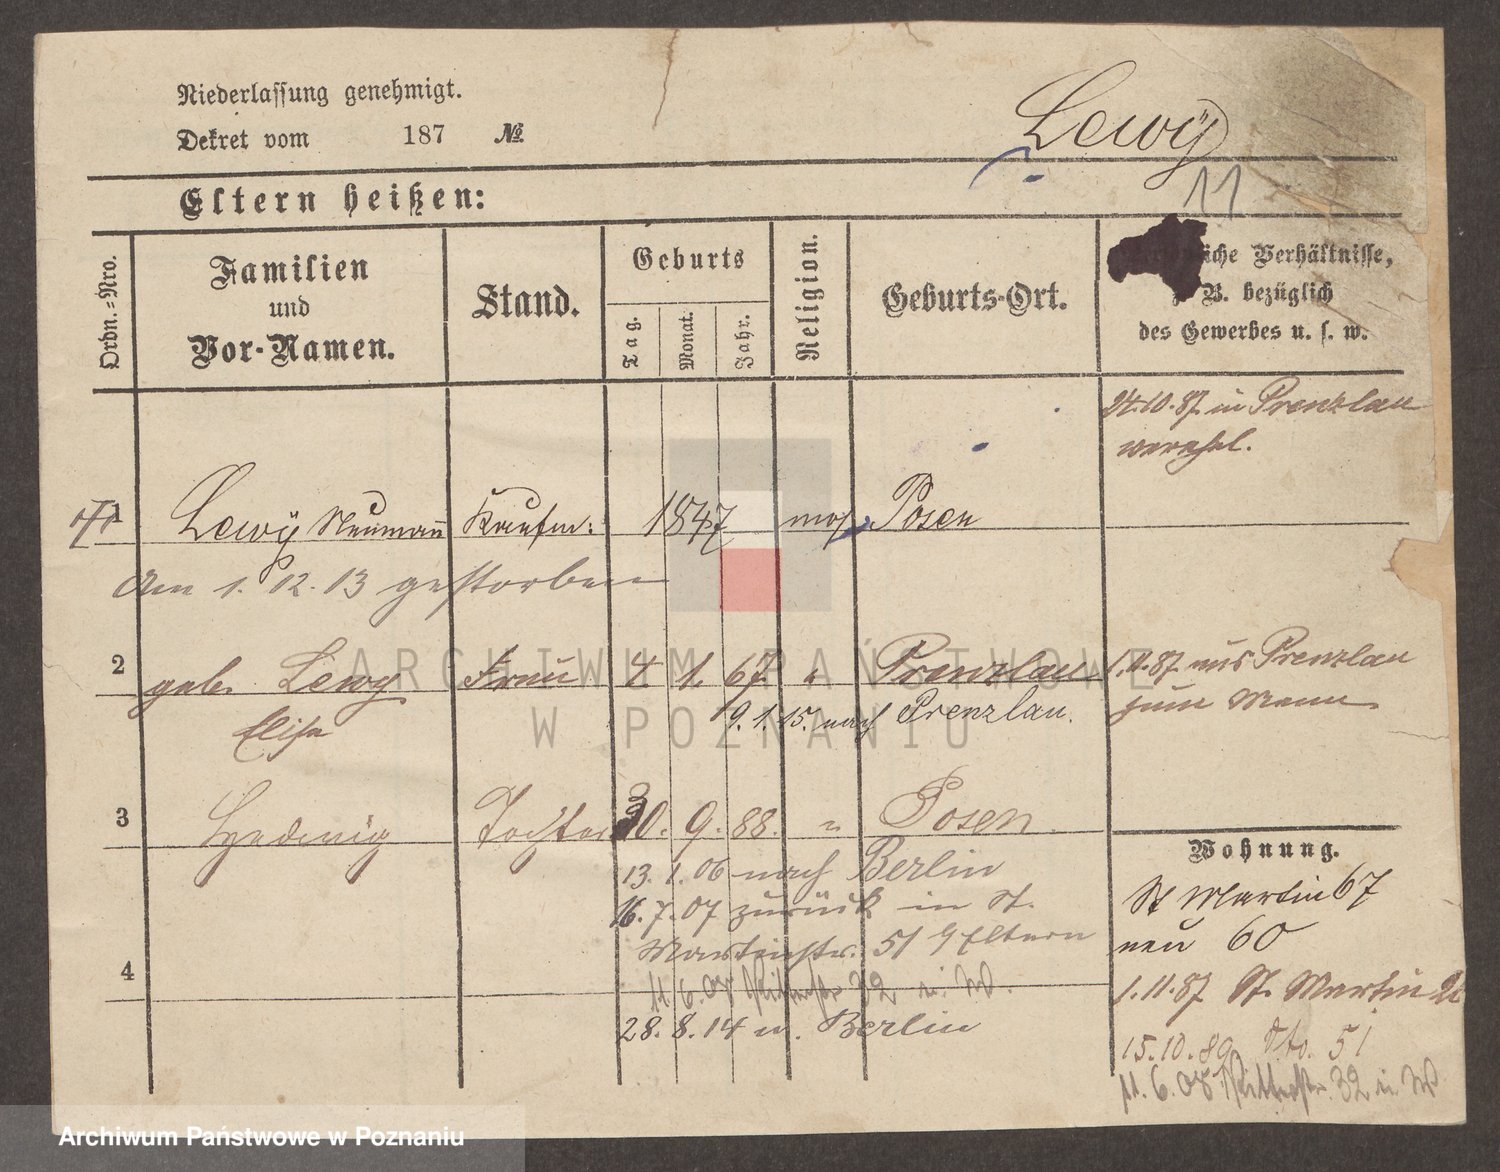 Niederlassung genehmigt.
Dekret vom 187 №
Lewÿ
11
Eltern heißen:
Ordn.-Nro.
Familien
und
Vor-Namen.
Stand.
Geburts
Tag.
Monat.
Jahr.
Religion.
Geburts-Ort.
Verhältnisse,
z. B. bezüglich
des Gewerbes u. s. w.
24.10.87 in Prenzlau
verehel.
1 Lewÿ Neumann Kaufm: 1847 mos. Posen
Am 1. 12. 13 gestorben
2 geb. Lewy Frau 4. 1. 67. " Prenzlau
Elise
9. 1. 15. nach Prenzlau.
1.11.87 aus Prenzlau
zum Mann
3 Hedwig Tochter 30. 9. 88. " Posen.
13. 1. 06 nach Berlin
16. 7. 07 zurück in St.
Martinstr. 51 Eltern
4
11. 6. 08 Ritterstr 32 i. W.
28. 8. 14 n. Berlin
Wohnung.
St Martin 67
neu 60
1.11.87 St. Martin
15.10.89 dto. 51
11. 6. 08 Ritterstr. 32 i. W
ARCHIWUM PAŃSTWOWE
W POZNANIU
Archiwum Państwowe w Poznaniu